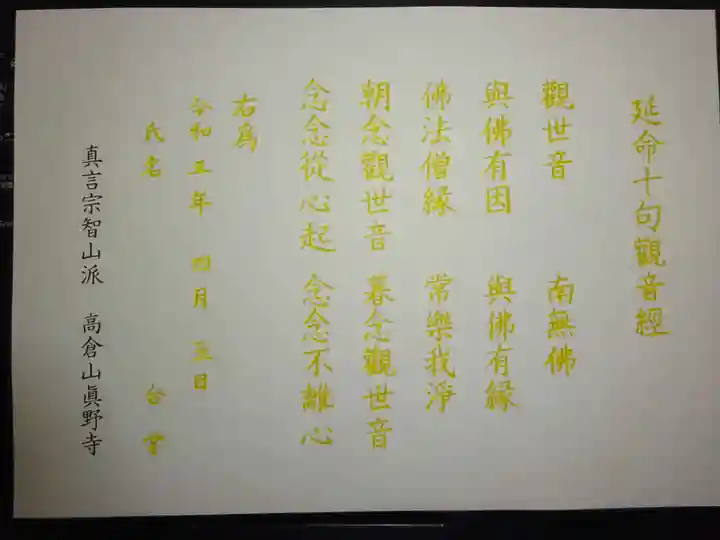 延命十句觀音經
觀世音 南無佛
與佛有因 與佛有縁
佛法僧縁 常樂我淨
朝念觀世音 暮念觀世音
念念從心起 念念不離心
右為
令和五年 四月 三日
氏名 合掌
真言宗智山派 高倉山眞野寺